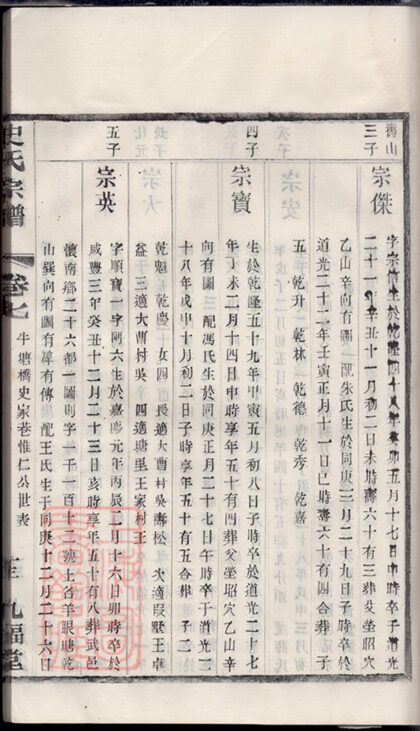 舊山
三子
宗傑
字宗信生於乾隆四十八年癸卯五月十七日申時卒于道光
二十一年辛丑十一月初二日未時壽六十有三葬父塋昭穴
乙山辛向有圖 配朱氏生於同庚三月二十九日子時卒於
道光二十二年壬寅正月十一日巳時壽六十有四合葬 子
五 乾升 乾林 乾德 乾秀 乾嘉
四子
宗寶
生於乾隆五十九年甲寅五月初八日子時卒於道光二十七
年丁未二月十四日申時享年五十有四葬父塋昭穴乙山辛
向有圖 配馮氏生於同庚正月二十七日午時卒于道光二
十八年戊申十月初二日子時享年五十有五合葬 子二
乾魁 乾慶 女四 長適大曹村吳壽松 次適段墅王卓
益 三適大曹村吳 四適塘里王家村王
五子
宗英
字順寶一字國六生於嘉慶元年丙辰二月十六日卯時卒於
咸豐三年癸丑十二月二十三日亥時享年五十有八葬武邑
懷南鄉二十六都一圖則字一千一百十三號上名羊眼塘乾
山巽向有圖有碑有傳 配王氏生于同庚十二月二十六日
史氏宗譜
卷七
牛塘橋史家巷惟仁公世表
九福堂